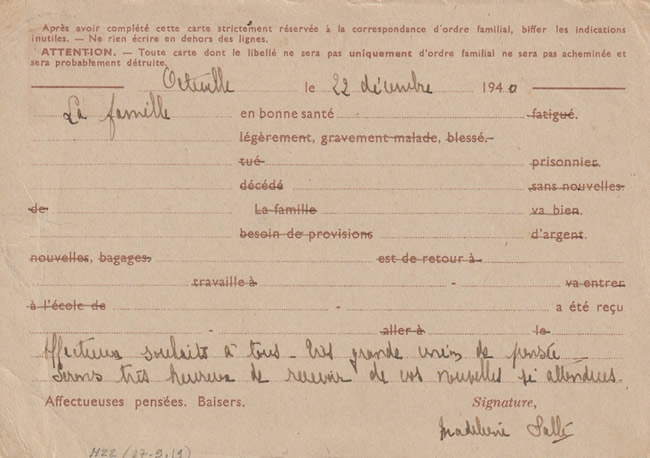 Après avoir complété cette carte strictement réservée à la correspondance d'ordre familial, biffer les indications
inutiles. — Ne rien écrire en dehors des lignes.
ATTENTION. — Toute carte dont le libellé ne sera pas uniquement d'ordre familial ne sera pas acheminée et
sera probablement détruite.
Octeville le 22 décembre 1940
La famille en bonne santé fatigué.
légèrement, gravement malade, blessé.
tué prisonnier.
décédé sans nouvelles
de La famille va bien.
besoin de provisions d'argent.
nouvelles, bagages. est de retour à
travaille à va entrer
à l'école de - a été reçu
- aller à le
Affectueux souhaits à tous - très grande union de pensée
Serons très heureux de recevoir de vos nouvelles si attendues.
Affectueuses pensées. Baisers. Signature,
Madeleine Sallé